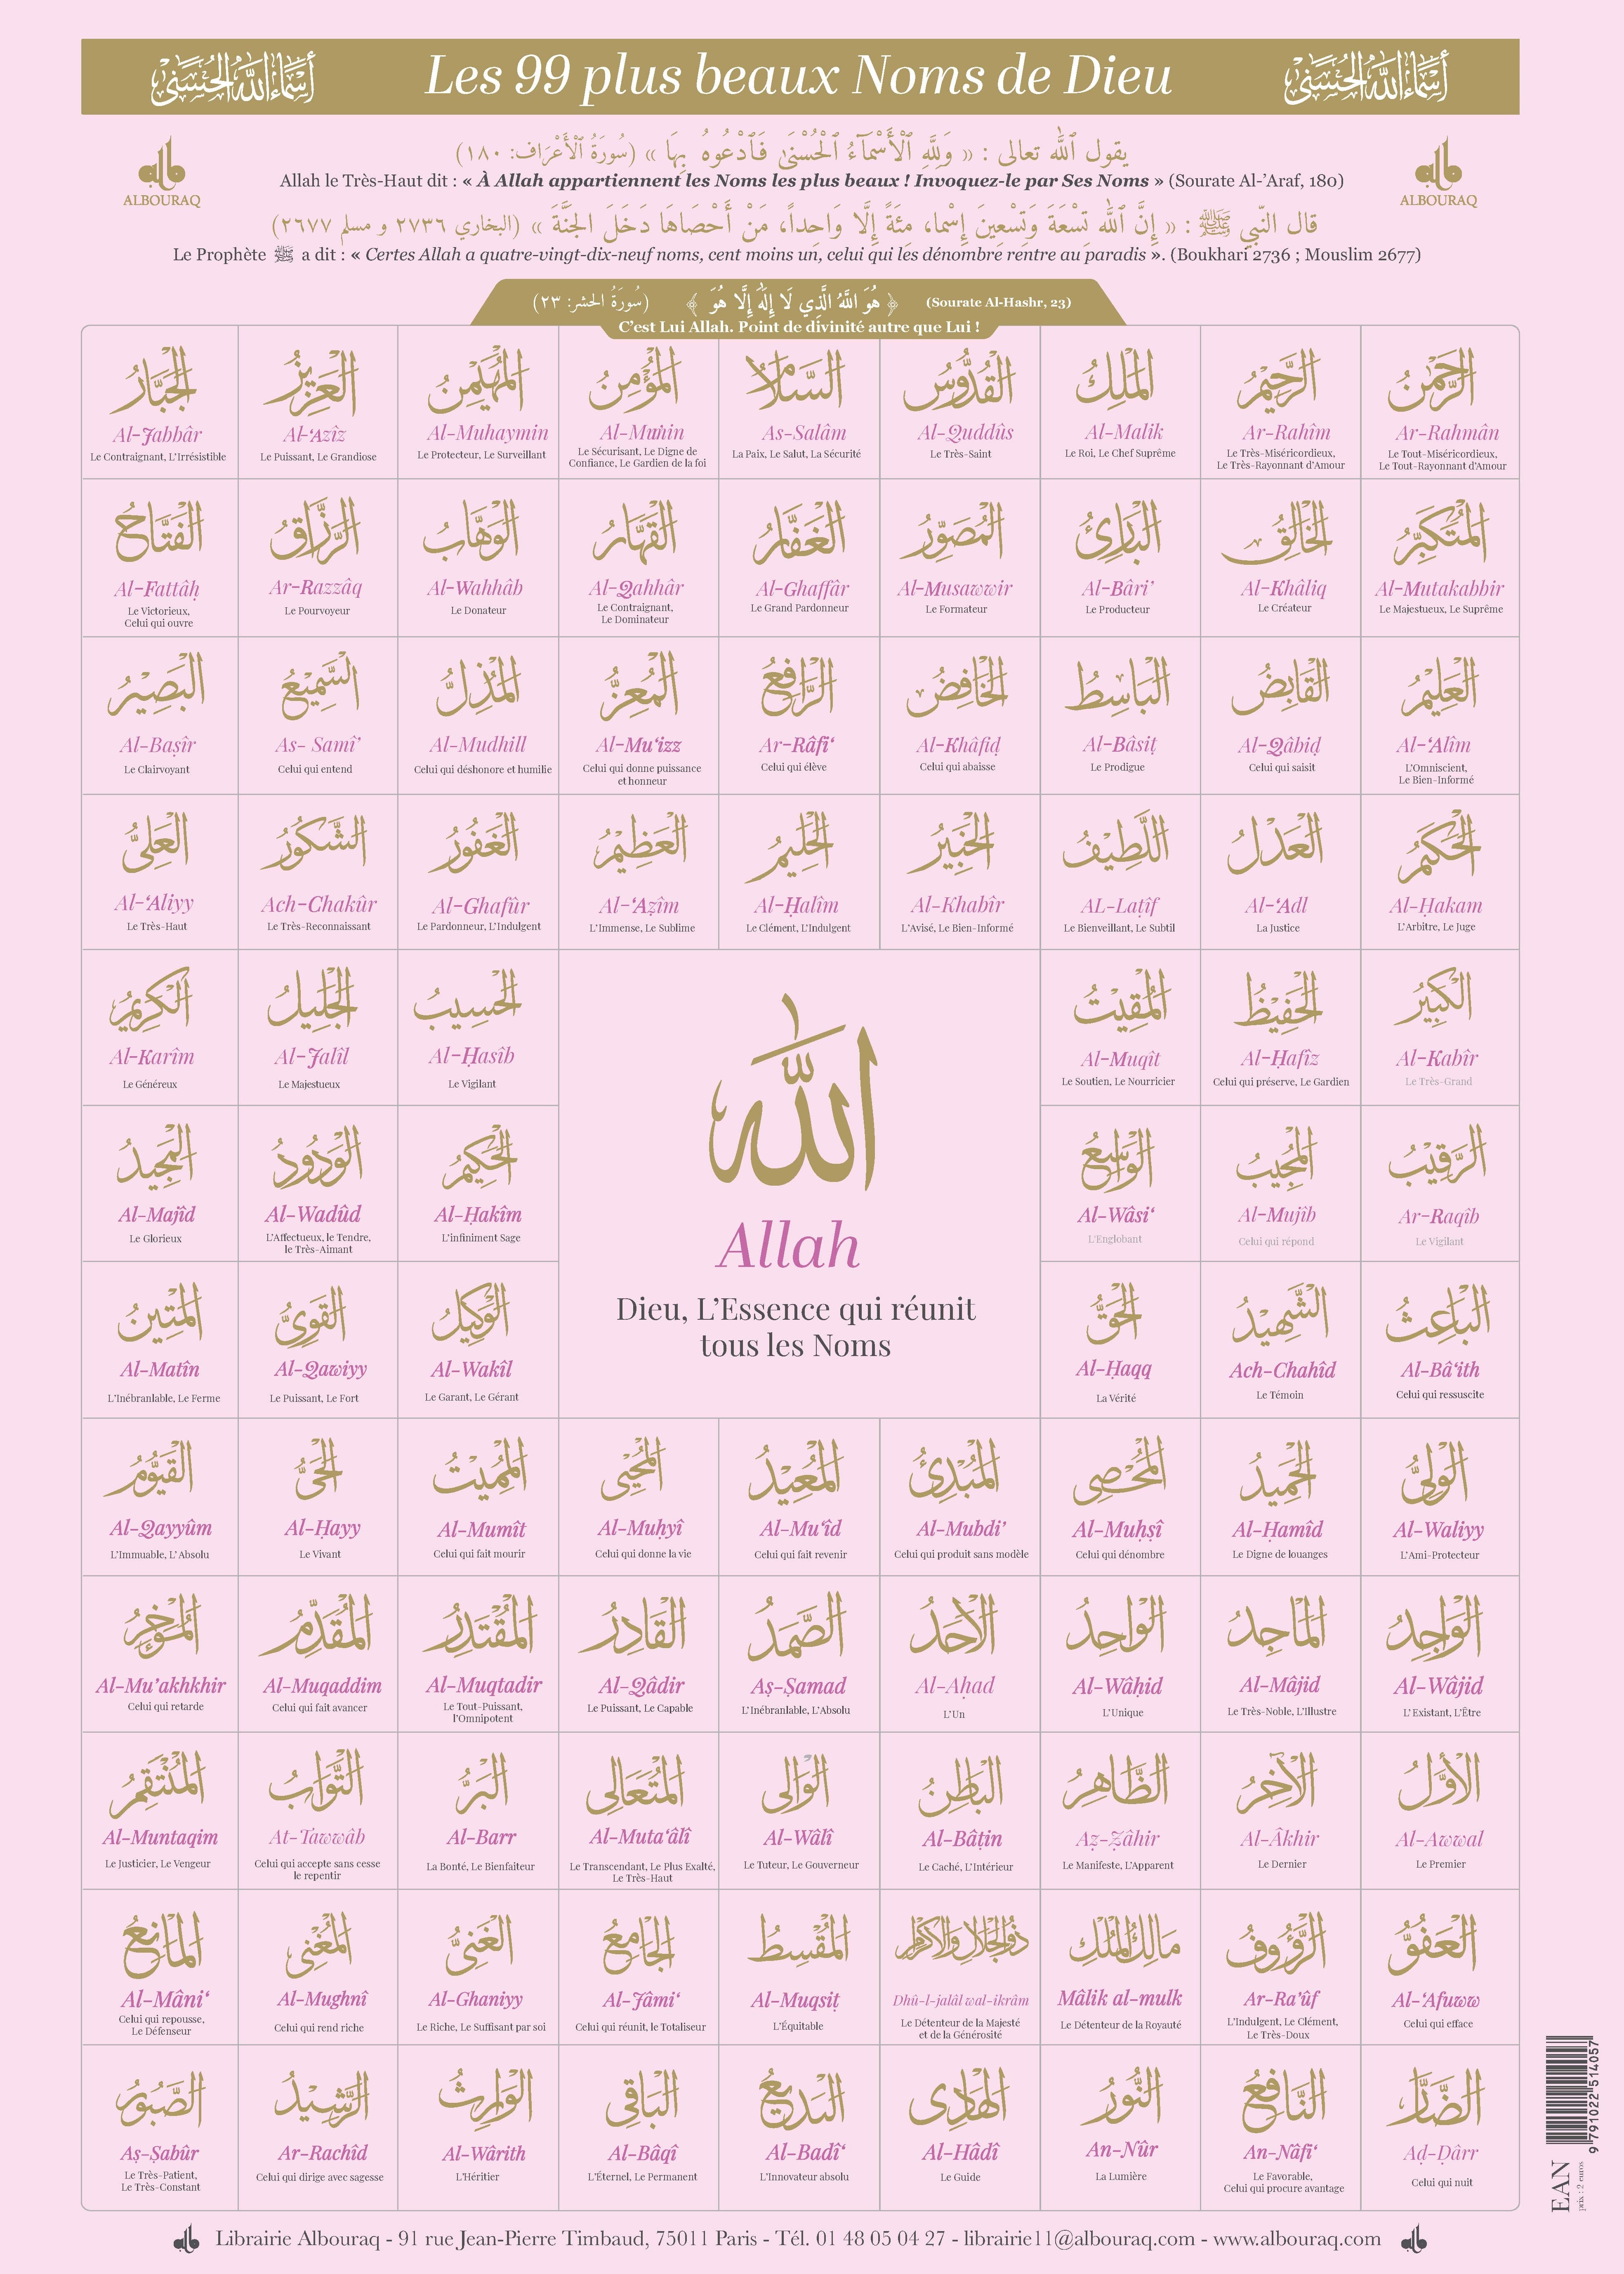 أسماء الله الحسنى
Les 99 plus beaux Noms de Dieu
أسماء الله الحسنى
ALBOURAQ
ALBOURAQ
يقول ٱلله تعالى : « وَلِلَّهِ ٱلْأَسْمَآءُ ٱلْحُسْنَىٰ فَٱدْعُوهُ بِهَا » (سُورَةُ ٱلْأَعْرَاف: ١٨٠)
Allah le Très-Haut dit : « À Allah appartiennent les Noms les plus beaux ! Invoquez-le par Ses Noms » (Sourate Al-’Araf, 180)
قال النّبي ﷺ : « إِنَّ ٱلله تِسْعَةَ وَتِسْعِينَ إِسْما، مِئَةً إِلَّا وَاحِداً، مَنْ أَحْصَاهَا دَخَلَ الجَنَّةَ » (البخاري ٢٧٣٦ و مسلم ٢٦٧٧)
Le Prophète ﷺ a dit : « Certes Allah a quatre-vingt-dix-neuf noms, cent moins un, celui qui les dénombre rentre au paradis ». (Boukhari 2736 ; Mouslim 2677)
(سُورَةُ الحشر: ٢٣) ﴿ هُوَ اللَّهُ الَّذِي لَا إِلَٰهَ إِلَّا هُوَ ﴾ (Sourate Al-Hashr, 23)
C’est Lui Allah. Point de divinité autre que Lui !
الرَّحْمٰنُ
Ar-Rahmân
Le Tout-Miséricordieux,
Le Tout-Rayonnant d’Amour
الرَّحِيْمُ
Ar-Rahîm
Le Très-Miséricordieux,
Le Très-Rayonnant d’Amour
المَلِكُ
Al-Malik
Le Roi, Le Chef Suprême
القُدُّوْسُ
Al-Quddûs
Le Très-Saint
السَّلَامُ
As-Salâm
La Paix, Le Salut, La Sécurité
المُؤْمِنُ
Al-Mu’min
Le Sécurisant, Le Digne de
Confiance, Le Gardien de la foi
المُهَيْمِنُ
Al-Muhaymin
Le Protecteur, Le Surveillant
العَزِيْزُ
Al-‘Azîz
Le Puissant, Le Grandiose
الجَبَّارُ
Al-Jabbâr
Le Contraignant, L’Irrésistible
المُتَكَبِّرُ
Al-Mutakabbir
Le Majestueux, Le Suprême
الخَالِقُ
Al-Khâliq
Le Créateur
البَارِئُ
Al-Bâri’
Le Producteur
المُصَوِّرُ
Al-Musawwir
Le Formateur
الغَفَّارُ
Al-Ghaffâr
Le Grand Pardonneur
القَهَّارُ
Al-Qahhâr
Le Contraignant,
Le Dominateur
الوَهَّابُ
Al-Wahhâb
Le Donateur
الرَّزَّاقُ
Ar-Razzâq
Le Pourvoyeur
الفَتَّاحُ
Al-Fattâḥ
Le Victorieux,
Celui qui ouvre
العَلِيْمُ
Al-‘Alîm
L’Omniscient,
Le Bien-Informé
القَابِضُ
Al-Qâbiḍ
Celui qui saisit
البَاسِطُ
Al-Bâsiṭ
Le Prodigue
الخَافِضُ
Al-Khâfiḍ
Celui qui abaisse
الرَّافِعُ
Ar-Râfi‘
Celui qui élève
المُعِزُّ
Al-Mu‘izz
Celui qui donne puissance
et honneur
المُذِلُّ
Al-Mudhill
Celui qui déshonore et humilie
السَّمِيْعُ
As- Samî’
Celui qui entend
البَصِيْرُ
Al-Baṣîr
Le Clairvoyant
الحَكَمُ
Al-Ḥakam
L’Arbitre, Le Juge
العَدْلُ
Al-‘Adl
La Justice
اللَّطِيْفُ
AL-Laṭîf
Le Bienveillant, Le Subtil
الخَبِيْرُ
Al-Khabîr
L’Avisé, Le Bien-Informé
الحَلِيْمُ
Al-Ḥalîm
Le Clément, L’Indulgent
العَظِيْمُ
Al-‘Aẓîm
L’Immense, Le Sublime
الغَفُوْرُ
Al-Ghafûr
Le Pardonneur, L’Indulgent
الشَّكُوْرُ
Ach-Chakûr
Le Très-Reconnaissant
العَلِيُّ
Al-‘Aliyy
Le Très-Haut
الكَبِيْرُ
Al-Kabîr
Le Très-Grand
الحَفِيْظُ
Al-Ḥafîz
Celui qui préserve, Le Gardien
المُقِيْتُ
Al-Muqît
Le Soutien, Le Nourricier
الله
Allah
Dieu, L’Essence qui réunit
tous les Noms
الحَسِيبُ
Al-Ḥasîb
Le Vigilant
الجَلِيْلُ
Al-Jalîl
Le Majestueux
الكَرِيْمُ
Al-Karîm
Le Généreux
الرَّقِيْبُ
Ar-Raqîb
Le Vigilant
المُجِيْبُ
Al-Mujîb
Celui qui répond
الوَاسِعُ
Al-Wâsi‘
L’Englobant
الحَكِيْمُ
Al-Ḥakîm
L’infiniment Sage
الوَدُوْدُ
Al-Wadûd
L’Affectueux, le Tendre,
le Très-Aimant
المَجِيْدُ
Al-Majîd
Le Glorieux
البَاعِثُ
Al-Bâ‘ith
Celui qui ressuscite
الشَّهِيْدُ
Ach-Chahîd
Le Témoin
الحَقُّ
Al-Ḥaqq
La Vérité
الوَكِيْلُ
Al-Wakîl
Le Garant, Le Gérant
القَوِيُّ
Al-Qawiyy
Le Puissant, Le Fort
المَتِيْنُ
Al-Matîn
L’Inébranlable, Le Ferme
الوَلِيُّ
Al-Waliyy
L’Ami-Protecteur
الحَمِيْدُ
Al-Ḥamîd
Le Digne de louanges
المُحْصِي
Al-Muḥṣî
Celui qui dénombre
المُبْدِئُ
Al-Mubdi’
Celui qui produit sans modèle
المُعِيْدُ
Al-Mu‘îd
Celui qui fait revenir
المُحْيِي
Al-Muḥyî
Celui qui donne la vie
المُمِيْتُ
Al-Mumît
Celui qui fait mourir
الحَيُّ
Al-Ḥayy
Le Vivant
القَيُّوْمُ
Al-Qayyûm
L’Immuable, L’Absolu
الوَاجِدُ
Al-Wâjid
L’Existant, L’Être
المَاجِدُ
Al-Mâjid
Le Très-Noble, L’Illustre
الوَاحِدُ
Al-Wâḥid
L’Unique
الأَحَدُ
Al-Aḥad
L’Un
الصَّمَدُ
Aṣ-Ṣamad
L’Inébranlable, L’Absolu
القَادِرُ
Al-Qâdir
Le Puissant, Le Capable
المُقْتَدِرُ
Al-Muqtadir
Le Tout-Puissant,
l’Omnipotent
المُقَدِّمُ
Al-Muqaddim
Celui qui fait avancer
المُؤَخِّرُ
Al-Mu’akhkhir
Celui qui retarde
الأَوَّلُ
Al-Awwal
Le Premier
الآخِرُ
Al-Âkhir
Le Dernier
الظَّاهِرُ
Aẓ-Ẓâhir
Le Manifeste, L’Apparent
البَاطِنُ
Al-Bâtin
Le Caché, L’Intérieur
الوَالِي
Al-Wâlî
Le Tuteur, Le Gouverneur
المُتَعَالِي
Al-Muta‘âlî
Le Transcendant, Le Plus Exalté,
Le Très-Haut
البَرُّ
Al-Barr
La Bonté, Le Bienfaiteur
التَّوَابُ
At-Tawwâb
Celui qui accepte sans cesse
le repentir
المُنْتَقِمُ
Al-Muntaqim
Le Justicier, Le Vengeur
العَفُوُّ
Al-‘Afuww
Celui qui efface
الرَّؤُوفُ
Ar-Ra’ûf
L’Indulgent, Le Clément,
Le Très-Doux
مَالِكُ المُلْكِ
Mâlik al-mulk
Le Détenteur de la Royauté
ذُو الجَلَالِ وَالإِكْرَامِ
Dhû-l-jalâl wal-ikrâm
Le Détenteur de la Majesté
et de la Générosité
المُقْسِطُ
Al-Muqsiṭ
L’Équitable
الجَامِعُ
Al-Jâmi‘
Celui qui réunit, le Totaliseur
الغَنِيُّ
Al-Ghaniyy
Le Riche, Le Suffisant par soi
المُغْنِي
Al-Mughnî
Celui qui rend riche
المَانِعُ
Al-Mâni‘
Celui qui repousse,
Le Défenseur
الضَّارُّ
Aḍ-Ḍârr
Celui qui nuit
النَّافِعُ
An-Nâfi‘
Le Favorable,
Celui qui procure avantage
النُّوْرُ
An-Nûr
La Lumière
الهَادِي
Al-Hâdî
Le Guide
البَدِيْعُ
Al-Badî‘
L’Innovateur absolu
البَاقِي
Al-Bâqî
L’Éternel, Le Permanent
الوَارِثُ
Al-Wârith
L’Héritier
الرَّشِيْدُ
Ar-Rachîd
Celui qui dirige avec sagesse
الصَّبُوْرُ
Aṣ-Ṣabûr
Le Très-Patient,
Le Très-Constant
9 791022 514057
EAN
prix : 2 euros
Librairie Albouraq - 91 rue Jean-Pierre Timbaud, 75011 Paris - Tél. 01 48 05 04 27 - librairie11@albouraq.com - www.albouraq.com